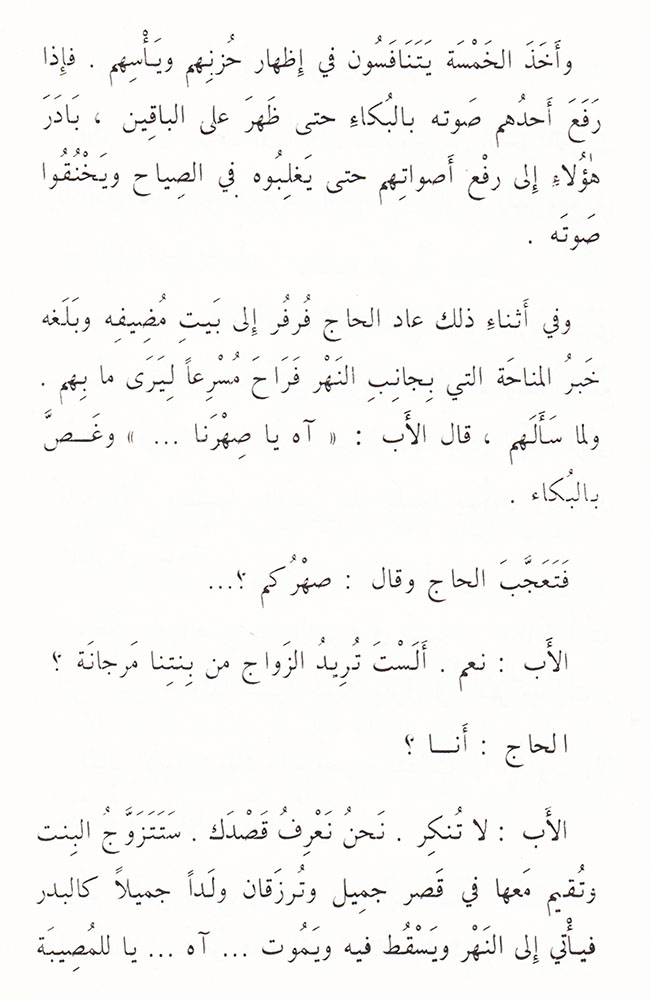 وأَخَذَ الخَمْسَة يَتَنَافَسُون في إِظهار حُزنِهم ويَأْسِهم . فإِذا
رَفَعَ أَحدُهم صَوته بالبُكاءِ حتى ظَهرَ على الباقِين ، بَادَرَ
هٰؤُلاءِ إِلى رفْع أَصواتِهم حتى يَغلِبُوه في الصِياح ويَخْنُقُوا
صَوتَه .
وفي أَثناءِ ذلك عاد الحاج فُرفُر إِلى بَيتِ مُضِيفِه وبَلَغه
خَبرُ المناحَة التي بِجانِبِ النَهْر فَرَاحَ مُسْرِعاً لِيَرَى ما بِهم .
ولما سَأَلَهم ، قال الأَب : « آه يا صِهْرَنا ... » وغَـصَّ
بالبُكاء .
فَتَعَجَّبَ الحاج وقال : صهْرُكم ؟...
الأَب : نعم . أَلَسْتَ تُرِيدُ الزَواج من بِنتِنا مَرجانَة ؟
الحاج : أَنـا ؟
الأَب : لا تُنكِر . نَحنُ نَعْرِفُ قَصْدَك . سَتَتَزَوَّجُ البِنت
وتُقيم مَعها في قَصر جمِيل وتُرزَقان ولَداً جميلاً كالبدر
فيأْتي إِلى النَهْر ويَسْقُط فيه ويَمُوت ... آه ... يا للمُصِيبَة